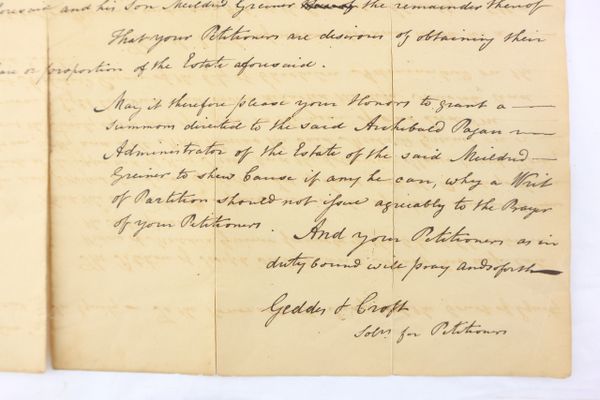 foresaid and his Son Meildred Greiner the remainder thereof
That your Petitioners are desirous of obtaining their
share or proportion of the Estate aforesaid.
May it therefore please your Honors to grant a
summons directed to the said Archibald Pagan
Administrator of the Estate of the said Meildred
Greiner to shew Cause if any he can, why a Writ
of Partition should not issue agreeably to the Prayer
of your Petitioners.
And your Petitioners as in
duty bound will pray and so forth
Geddes & Croft
Solrs. for Petitioners